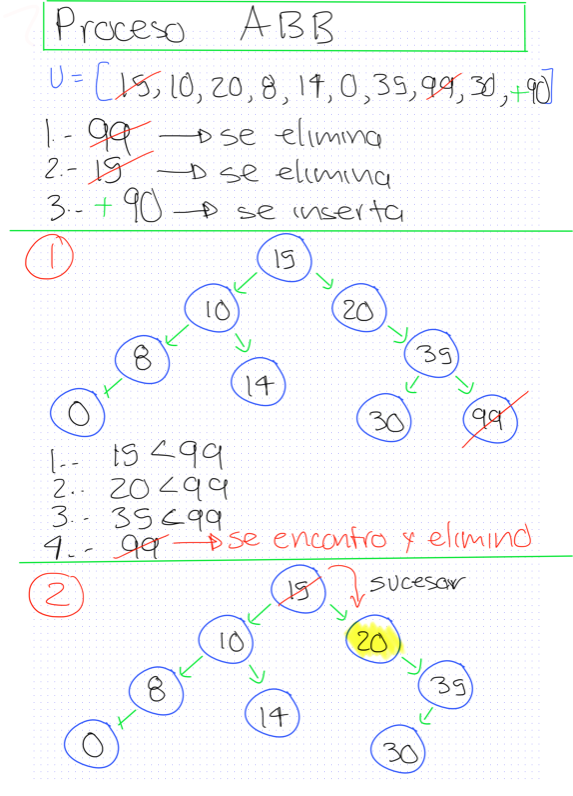 Proceso ABB
U = [15, 10, 20, 8, 14, 0, 35, 99, 30, +90]
1.- 99 → se elimina
2.- 15 → se elimina
3.- + 90 → se inserta
1
15
10 20
8 35
14
0 30 99
1.- 15 < 99
2.- 20 < 99
3.- 35 < 99
4.- 99 → se encontro y elimino
2
15 sucesor
10 20
8 35
14
0 30